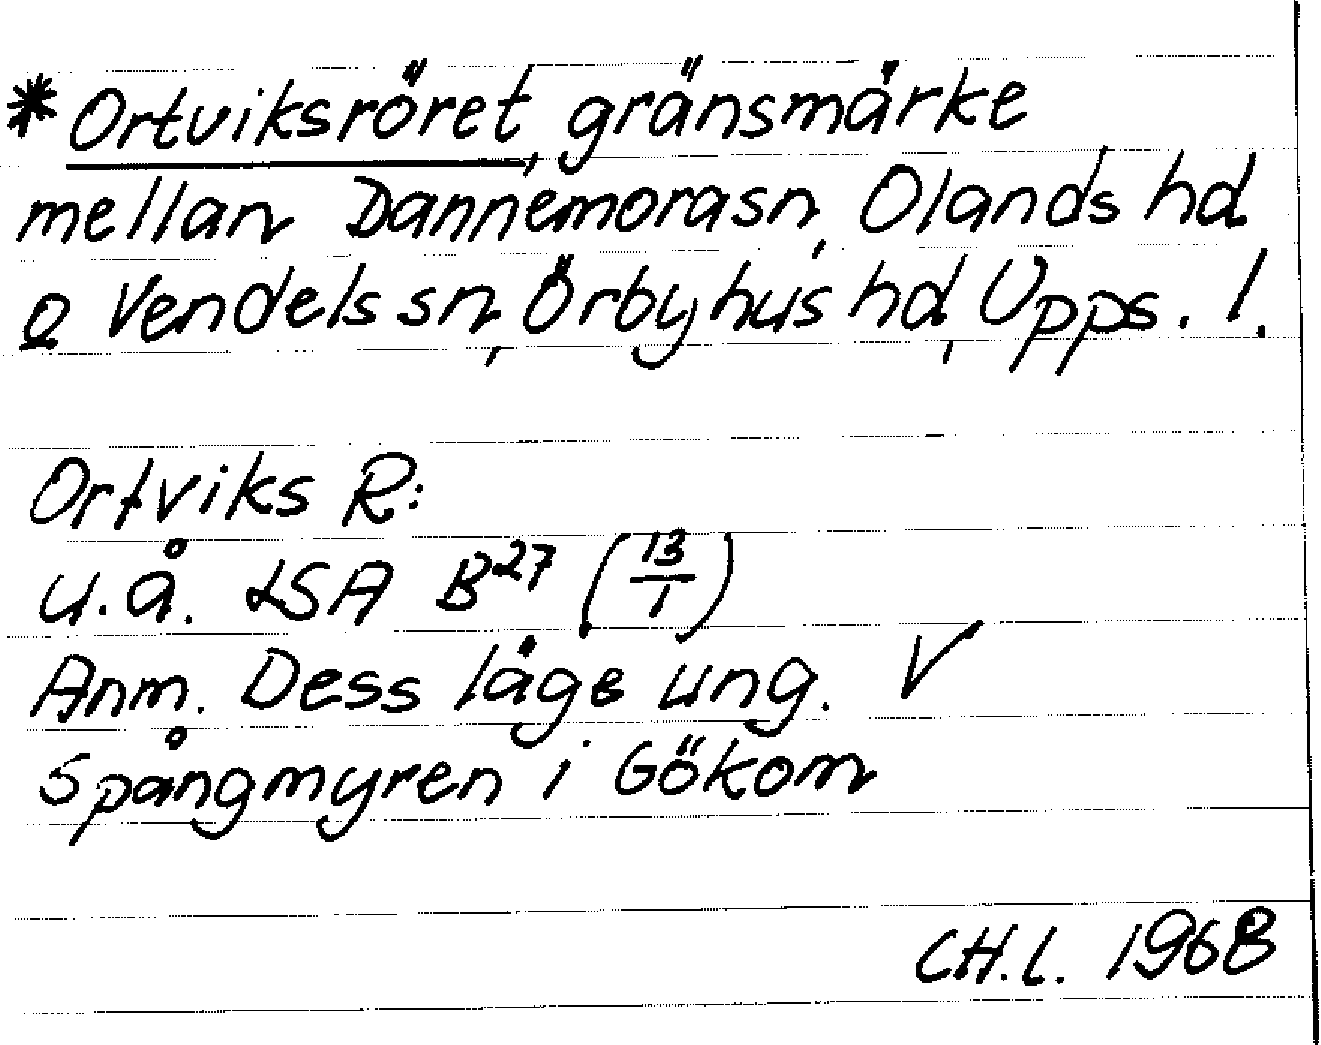 * Ortviksröret, gränsmärke
mellan Dannemora sn, Olands hd
o Vendels sn, Örbyhus hd, Upps. l.
Ortviks R:
u.å. LSA B²⁷ (13/1)
Anm. Dess läge ung. V
Spångmyren i Gökom
CH.L. 1968